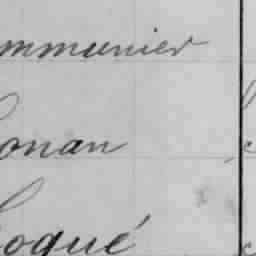 mmunier
onan
oqué